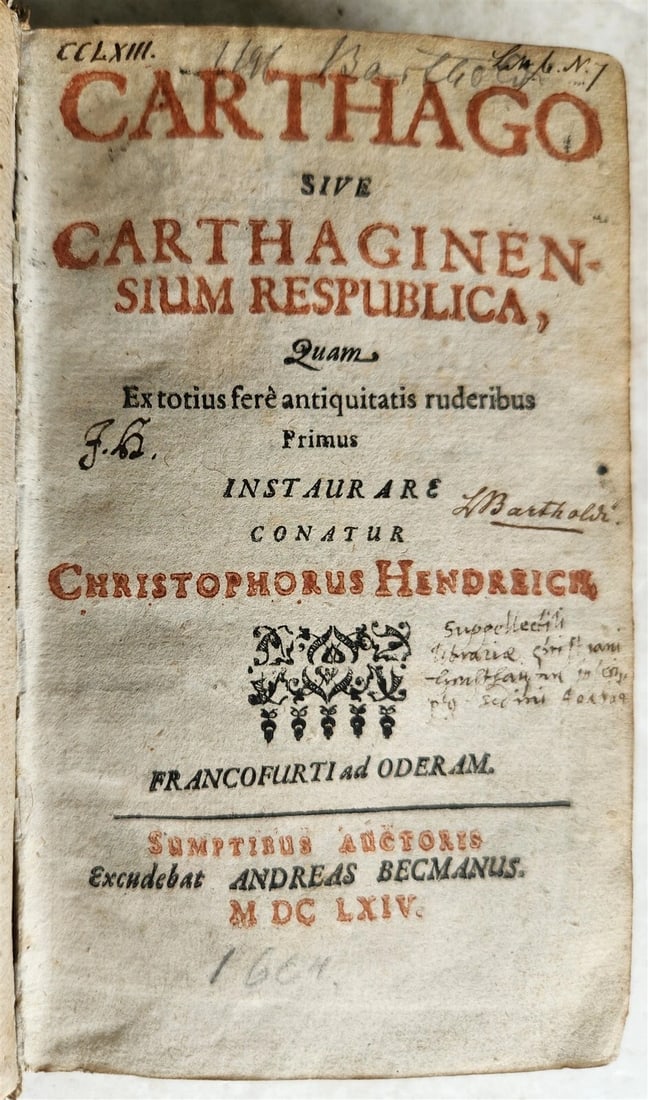 CCLXIII.
Bartholdi
CARTHAGO
SIVE
CARTHAGINEN-
SIUM RESPUBLICA,
Quam
Ex totius ferè antiquitatis ruderibus
Primus
J.H.
INSTAURARE
LBartholdi.
CONATUR
CHRISTOPHORUS HENDREICH,
Supellectili
librariæ
FRANCOFURTI ad ODERAM.
SUMPTIBUS AUCTORIS
Excudebat ANDREAS BECMANUS.
M DC LXIV.
1664